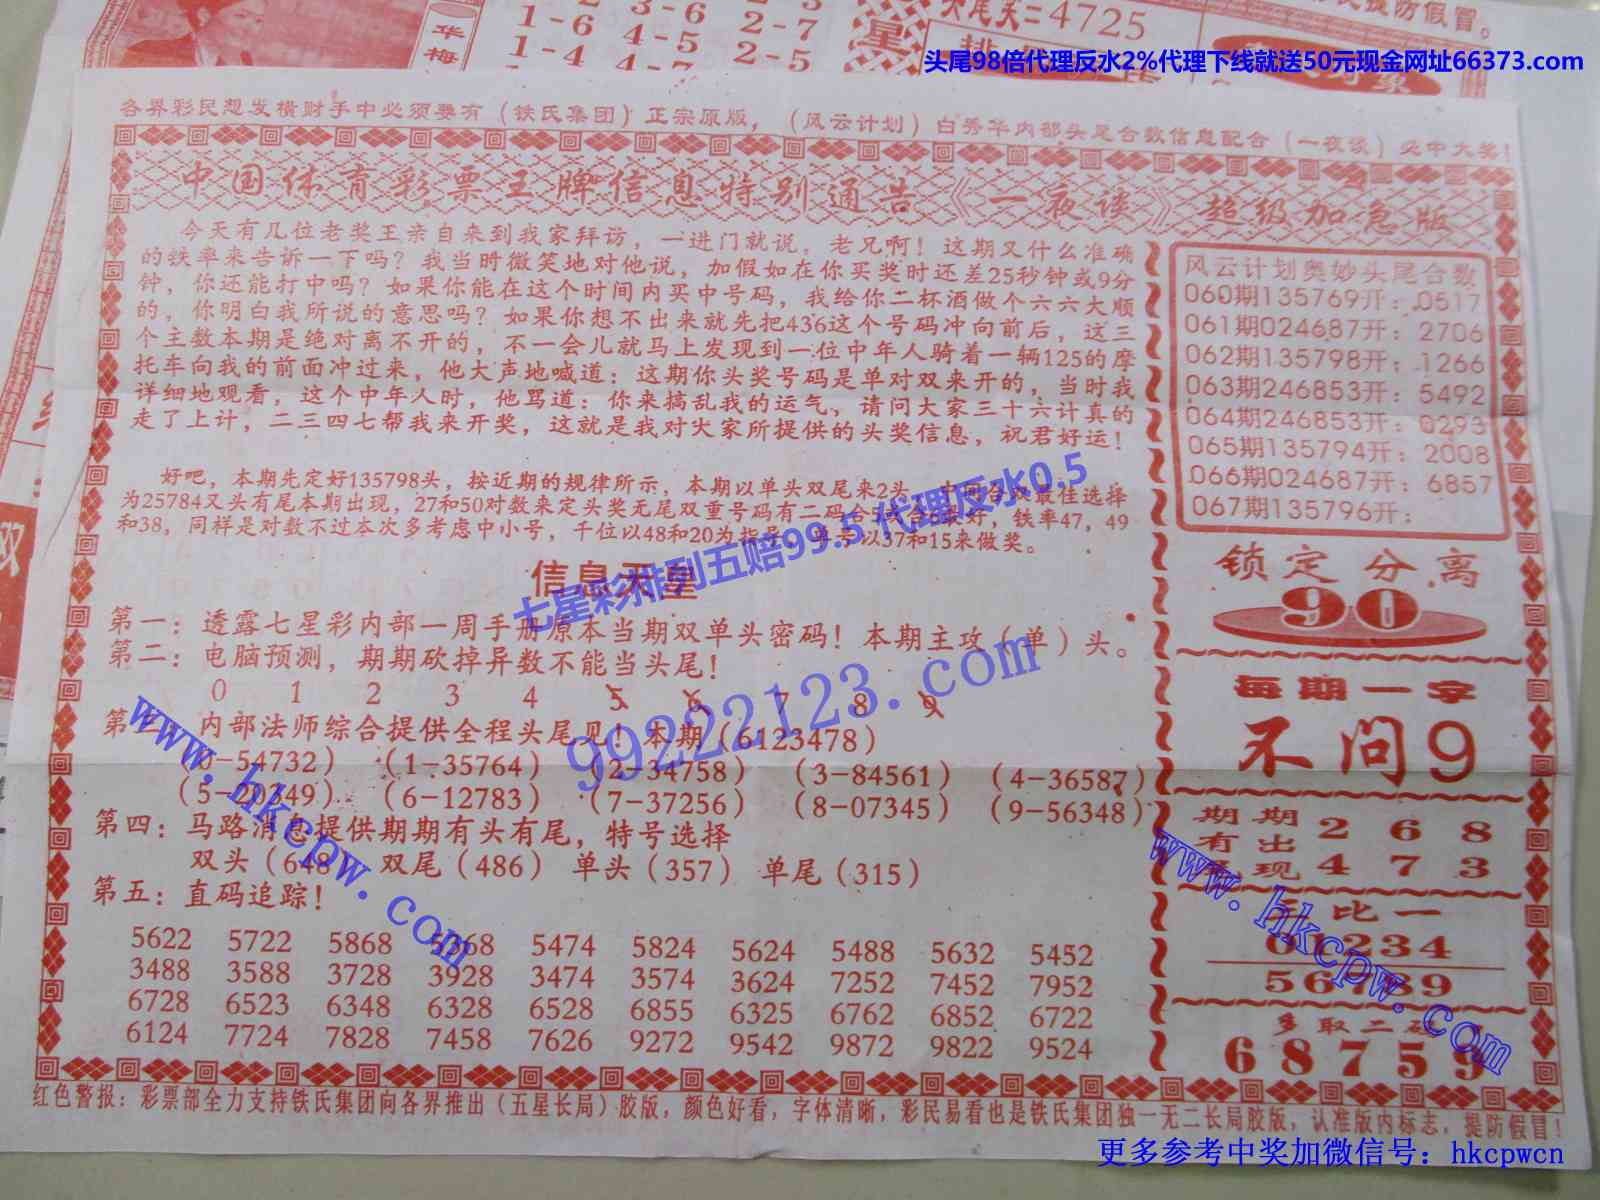 华梅
1-6 3-6 2-7
1-4 4-5 2-5
4725
星
头尾98倍代理反水2%代理下线就送50元现金网址66373.com
各界彩民想发横财手中必须要有（铁氏集团）正宗原版，（风云计划）白秀华内部头尾合数信息配合（一夜谈）必中大奖！
中国体育彩票王牌信息特别通告《一夜谈》超级加急版
今天有几位老奖王亲自来到我家拜访，一进门就说，老兄啊！这期又什么准确
的铁率来告诉一下吗？我当时微笑地对他说，加假如在你买奖时还差25秒钟或9分
钟，你还能打中吗？如果你能在这个时间内买中号码，我给你二杯酒做个六六大顺
的，你明白我所说的意思吗？如果你想不出来就先把436这个号码冲向前后，这三
个主数本期是绝对离不开的，不一会儿就马上发现到一位中年人骑着一辆125的摩
托车向我的前面冲过来，他大声地喊道：这期你头奖号码是单对双来开的，当时我
详细地观看，这个中年人时，他骂道：你来搞乱我的运气，请问大家三十六计真的
走了上计，二三四七帮我来开奖，这就是我对大家所提供的头奖信息，祝君好运！
好吧，本期先定好135798头，按近期的规律所示，本期以单头双尾来2头，中间合双最佳选择
为25784又头有尾本期出现，27和50对数来定头奖无尾双重号码有二码合 最好，铁率47，49
和38，同样是对数不过本次多考虑中小号，千位以48和20为指导，单号以37和15来做奖。
七星彩排列五赔99.5 代理反水0.5
信息天皇
第一：透露七星彩内部一周手册原本当期双单头密码！本期主攻（单）头。
第二：电脑预测，期期砍掉异数不能当头尾！
0 1 2 3 4 5 6 7 8 9
第三：内部法师综合提供全程头尾见！本期（6123478）
（0-54732）（1-35764）（2-34758）（3-84561）（4-36587）
（5-20349）（6-12783）（7-37256）（8-07345）（9-56348）
第四：马路消息提供期期有头有尾，特号选择
双头（648）双尾（486）单头（357）单尾（315）
第五：直码追踪！
5622 5722 5868 5368 5474 5824 5624 5488 5632 5452
3488 3588 3728 3928 3474 3574 3624 7252 7452 7952
6728 6523 6348 6328 6528 6855 6325 6762 6852 6722
6124 7724 7828 7458 7626 9272 9542 9872 9822 9524
风云计划奥妙头尾合数
060期135769开：0517
061期024687开：2706
062期135798开：1266
063期246853开：5492
064期246853开：0293
065期135794开：2008
066期024687开：6857
067期135796开：
锁定分离
90
每期一字
不问9
期期 2 6 8
有出
现 4 7 3
比一
01234
56789
多取二码
68759
www.hkcpw.com
99222123.com
www.hkcpw.com
红色警报：彩票部全力支持铁氏集团向各界推出（五星长局）胶版，颜色好看，字体清晰，彩民易看也是铁氏集团独一无二长局胶版，认准版内标志，提防假冒！
更多参考中奖加微信号：hkcpwcn